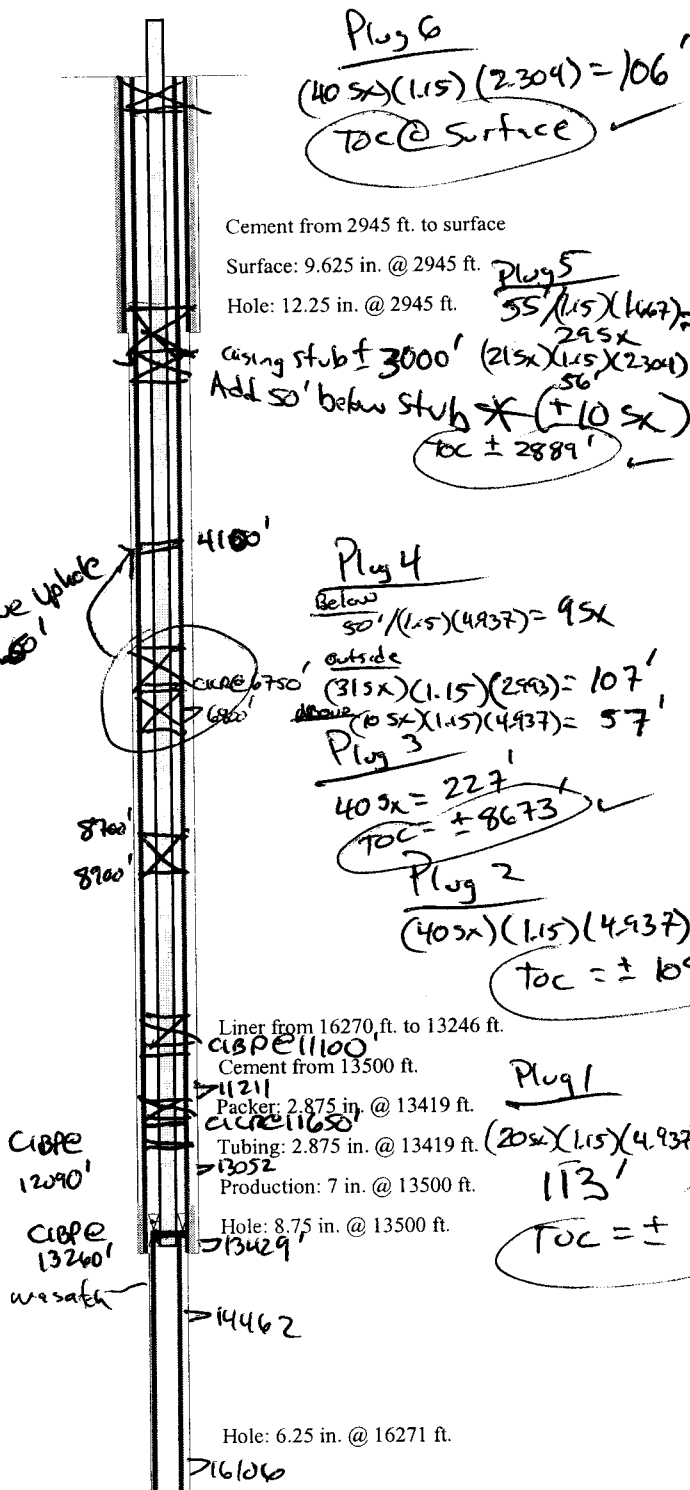 Plug 6
(40 sx)(1.15)(2.304) = 106'
TOC @ Surface
Cement from 2945 ft. to surface
Surface: 9.625 in. @ 2945 ft.
Hole: 12.25 in. @ 2945 ft.
Plug 5
55'/(1.15)(1.667) =
29 sx
casing stub ± 3000'
(21 sx)(1.15)(2.304)
56'
Add 50' below stub * (±10 sx)
TOC ± 2889'
4100'
uphole
Plug 4
Below
50'/(1.15)(4.937) = 9 sx
outside
(31 sx)(1.15)(2.993) = 107'
CICR@ 6750'
6800'
above (10 sx)(1.15)(4.937) = 57'
Plug 3
40 sx = 227'
TOC = ± 8673'
8700'
8900'
Plug 2
(40 sx)(1.15)(4.937)
TOC = ±
Liner from 16270 ft. to 13246 ft.
CIBP@ 11100'
Cement from 13500 ft.
11211
Packer: 2.875 in. @ 13419 ft.
CICR@ 11650'
Plug 1
Tubing: 2.875 in. @ 13419 ft.
(20 sx)(1.15)(4.937
CIBP@
12090'
13052
Production: 7 in. @ 13500 ft.
113'
Hole: 8.75 in. @ 13500 ft.
CIBP@
13260'
13429'
TOC = ±
wasatch
14462
Hole: 6.25 in. @ 16271 ft.
16106